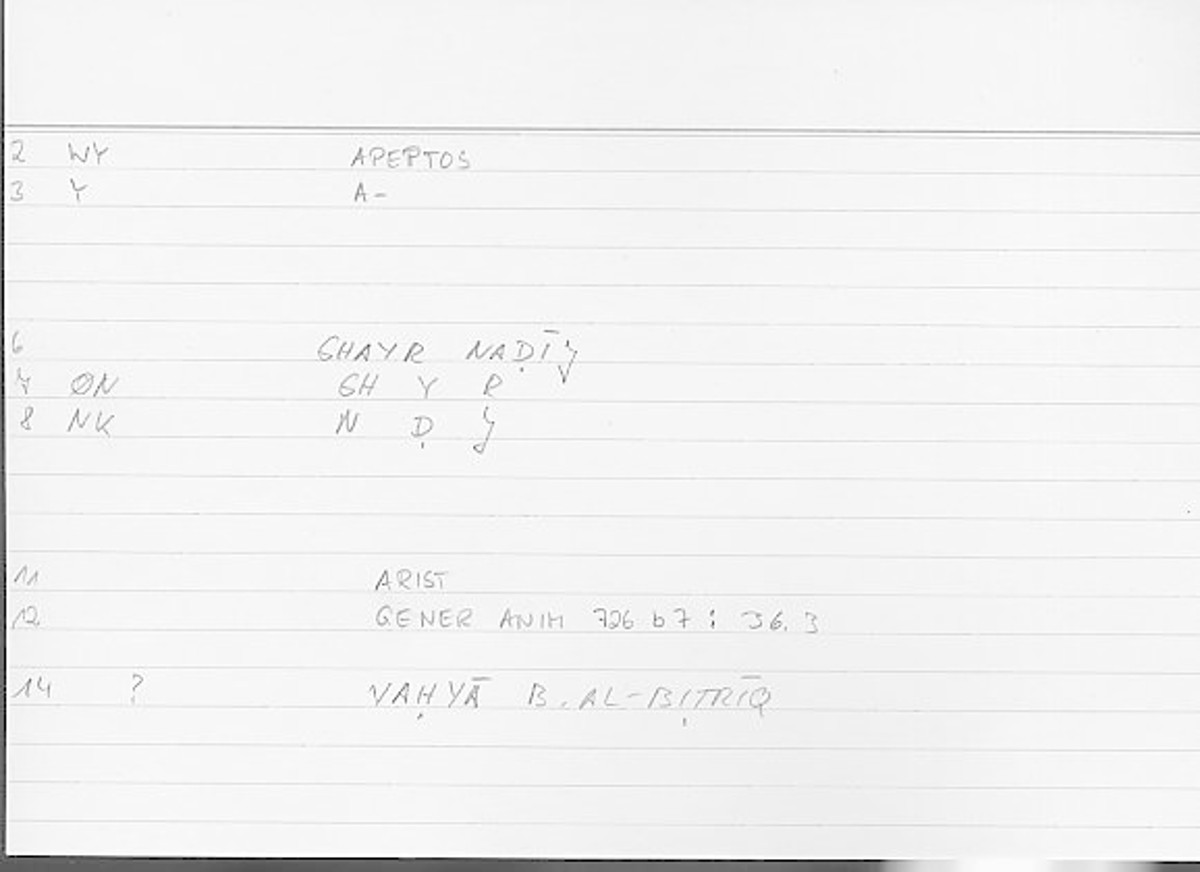 2 WY APEPTOS
3 Y A-
6 GHAYR NAḌĪJ
7 ØN GH Y R
8 NK N Ḍ J
11 ARIST
12 GENER ANIM 726 b 7 : 36.3
14 ? YAḤYĀ B. AL-BIṬRĪQ